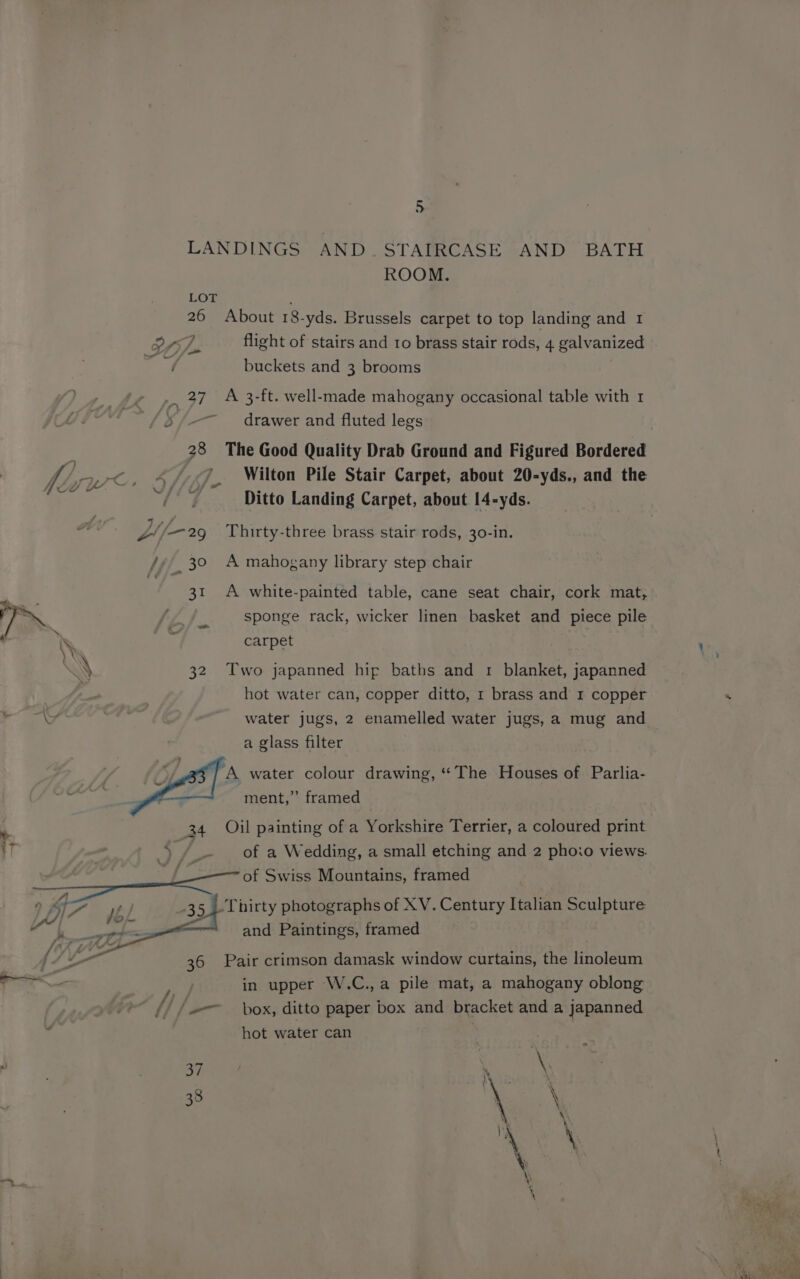 5
LANDINGS AND STAIRCASE AND BATH
ROOM.
LOT
26 About 18-yds. Brussels carpet to top landing and 1
flight of stairs and 10 brass stair rods, 4 galvanized
buckets and 3 brooms
27 A 3-ft. well-made mahogany occasional table with 1
drawer and fluted legs
28 The Good Quality Drab Ground and Figured Bordered
Wilton Pile Stair Carpet, about 20-yds., and the
Ditto Landing Carpet, about 14-yds.
29 Thirty-three brass stair rods, 30-in.
30 A mahogany library step chair
31 A white-painted table, cane seat chair, cork mat,
sponge rack, wicker linen basket and piece pile
carpet
32 Two japanned hip baths and 1 blanket, japanned
hot water can, copper ditto, 1 brass and 1 copper
water jugs, 2 enamelled water jugs, a mug and
a glass filter
33 A water colour drawing, “The Houses of Parlia-
ment,” framed
34 Oil painting of a Yorkshire Terrier, a coloured print
of a Wedding, a small etching and 2 photo views
of Swiss Mountains, framed
35 Thirty photographs of XV. Century Italian Sculpture
and Paintings, framed
36 Pair crimson damask window curtains, the linoleum
in upper W.C., a pile mat, a mahogany oblong
box, ditto paper box and bracket and a japanned
hot water can
37
38